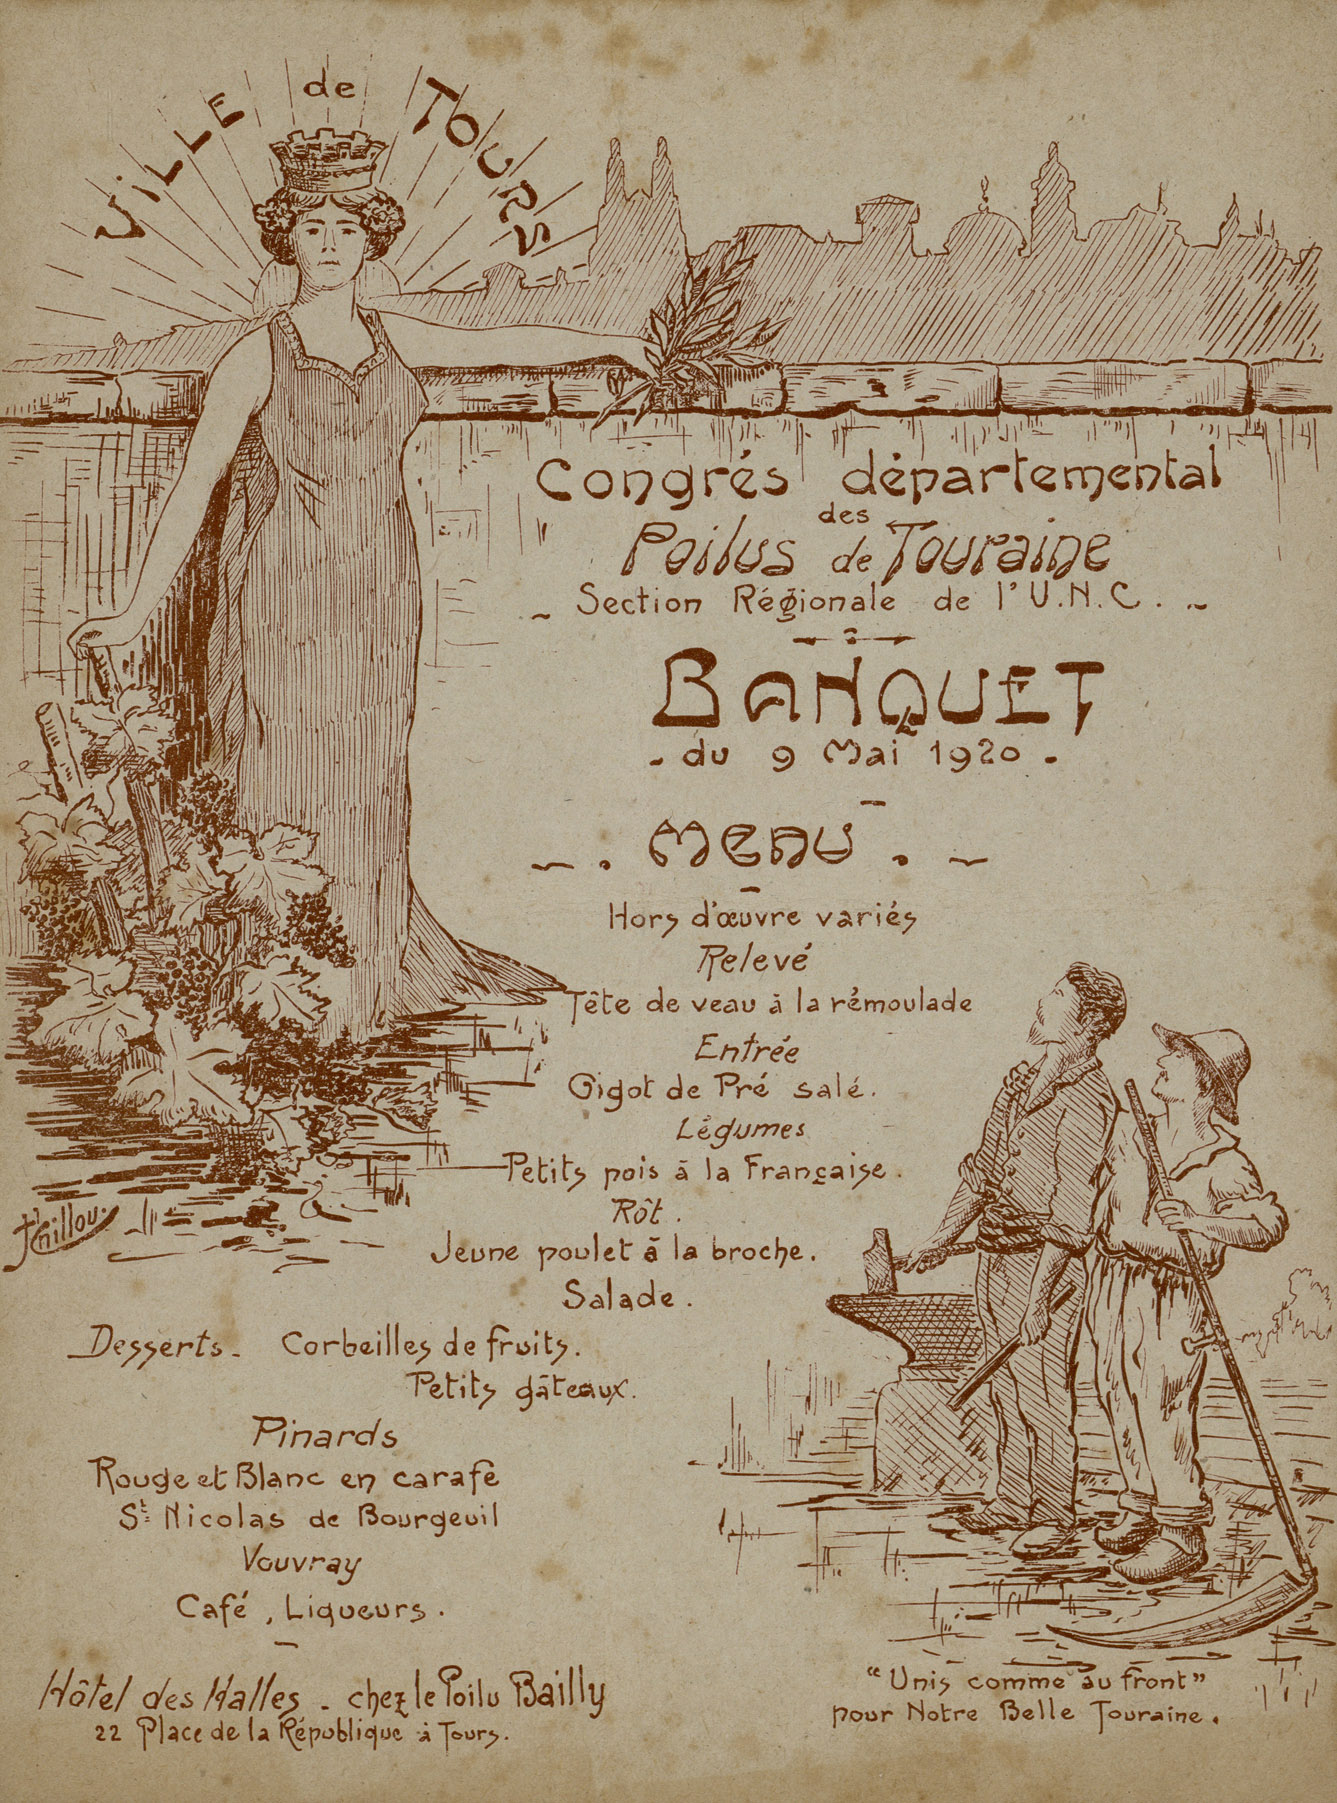 Ville de Tours
Congrés départemental
des
Poilus de Touraine
Section Régionale de l'U.N.C.
Banquet
du 9 Mai 1920
Menu
Hors d'œuvre variés
Relevé
Tête de veau à la rémoulade
Entrée
Gigot de Pré salé.
Légumes
Petits pois à la Française.
Rôt.
Jeune poulet à la broche.
Salade.
Desserts. Corbeilles de fruits.
Petits gâteaux.
Pinards
Rouge et Blanc en carafe
St Nicolas de Bourgeuil
Vouvray
Café, Liqueurs.
Hôtel des Halles - chez le Poilu Bailly
22 Place de la République à Tours.
"Unis comme au front"
pour Notre Belle Touraine.